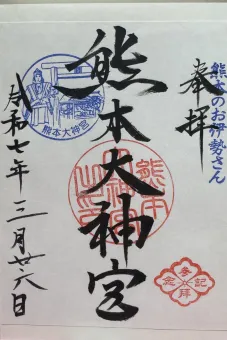 奉拝
熊本のお伊勢さん
熊本大神宮
熊本大神宮
熊本大神宮之印
参拝記念
令和七年三月廿六日